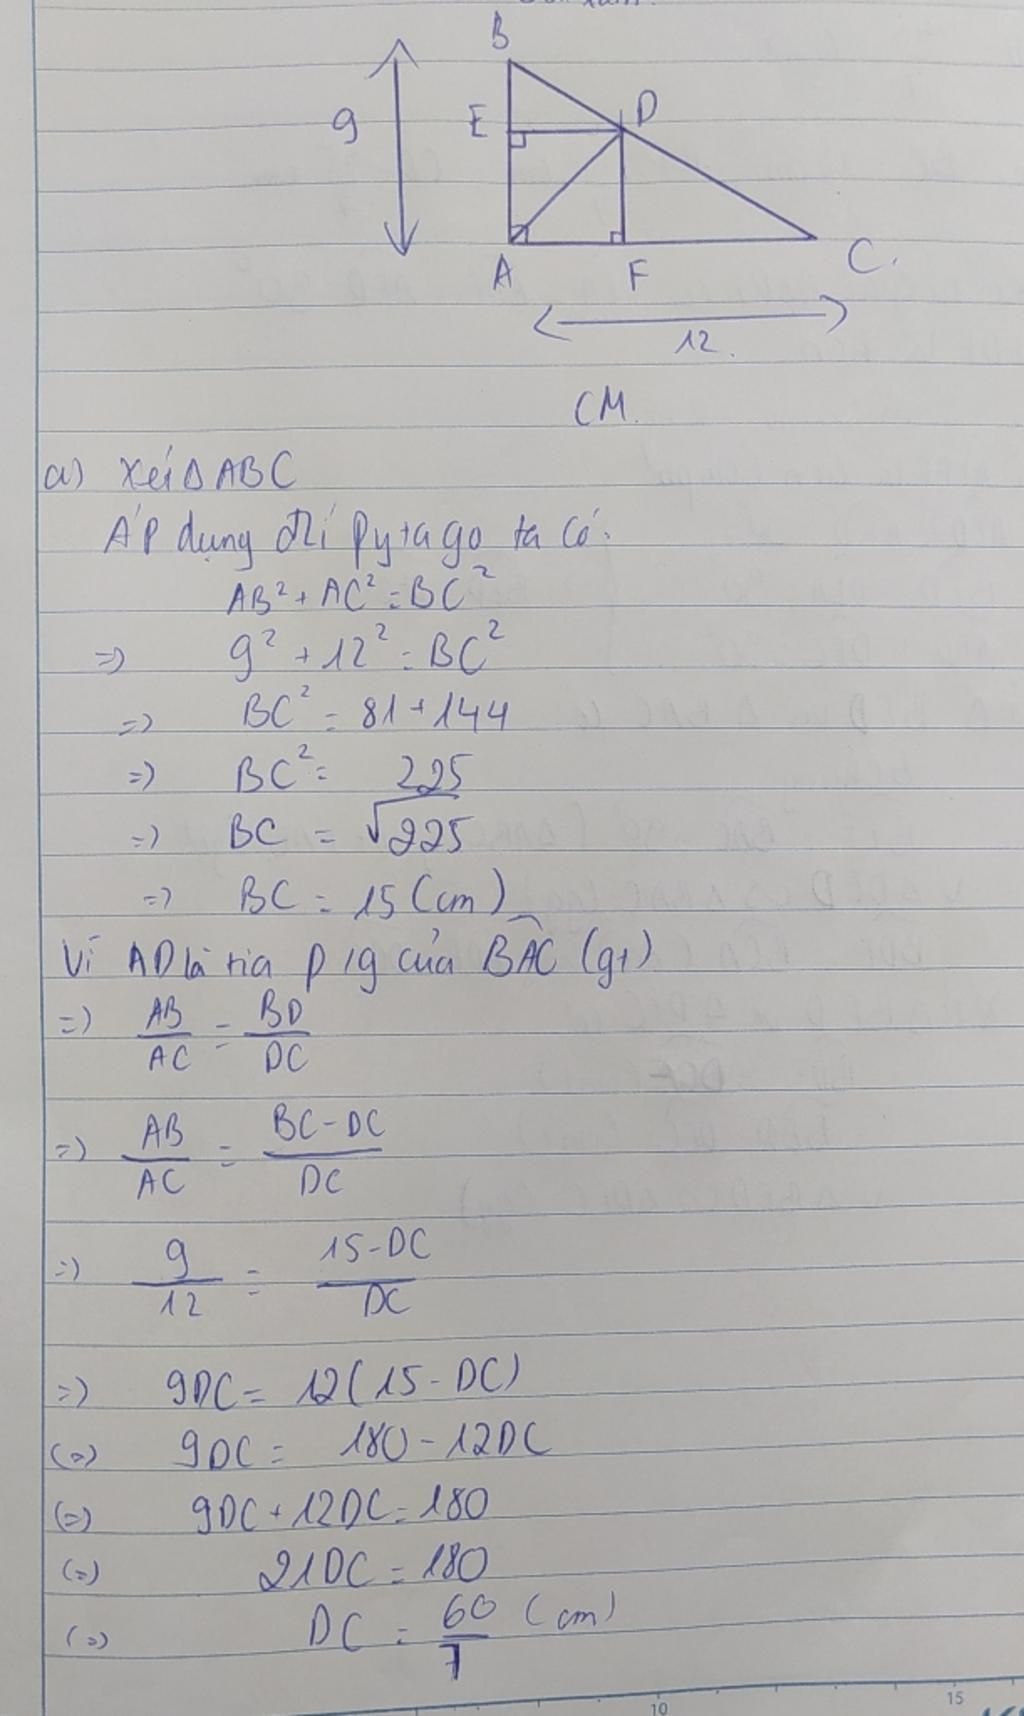 B
9
E
D
A
F
C.
12.
CM.
a) Xét Δ ABC
ÁP dụng đlí Pytago ta có:
AB² + AC² = BC²
=> 9² + 12² = BC²
=> BC² = 81 + 144
=> BC² = 225
=> BC = √225
=> BC = 15 (cm)
Vì AD là tia p/g của BÂC (gt)
=> AB/AC = BD/DC
=> AB/AC = BC-DC/DC
=> 9/12 = 15-DC/DC
=> 9DC = 12(15 - DC)
(=) 9DC = 180 - 12DC
(=) 9DC + 12DC = 180
(=) 21DC = 180
(=) DC = 60/7 (cm)
10
15